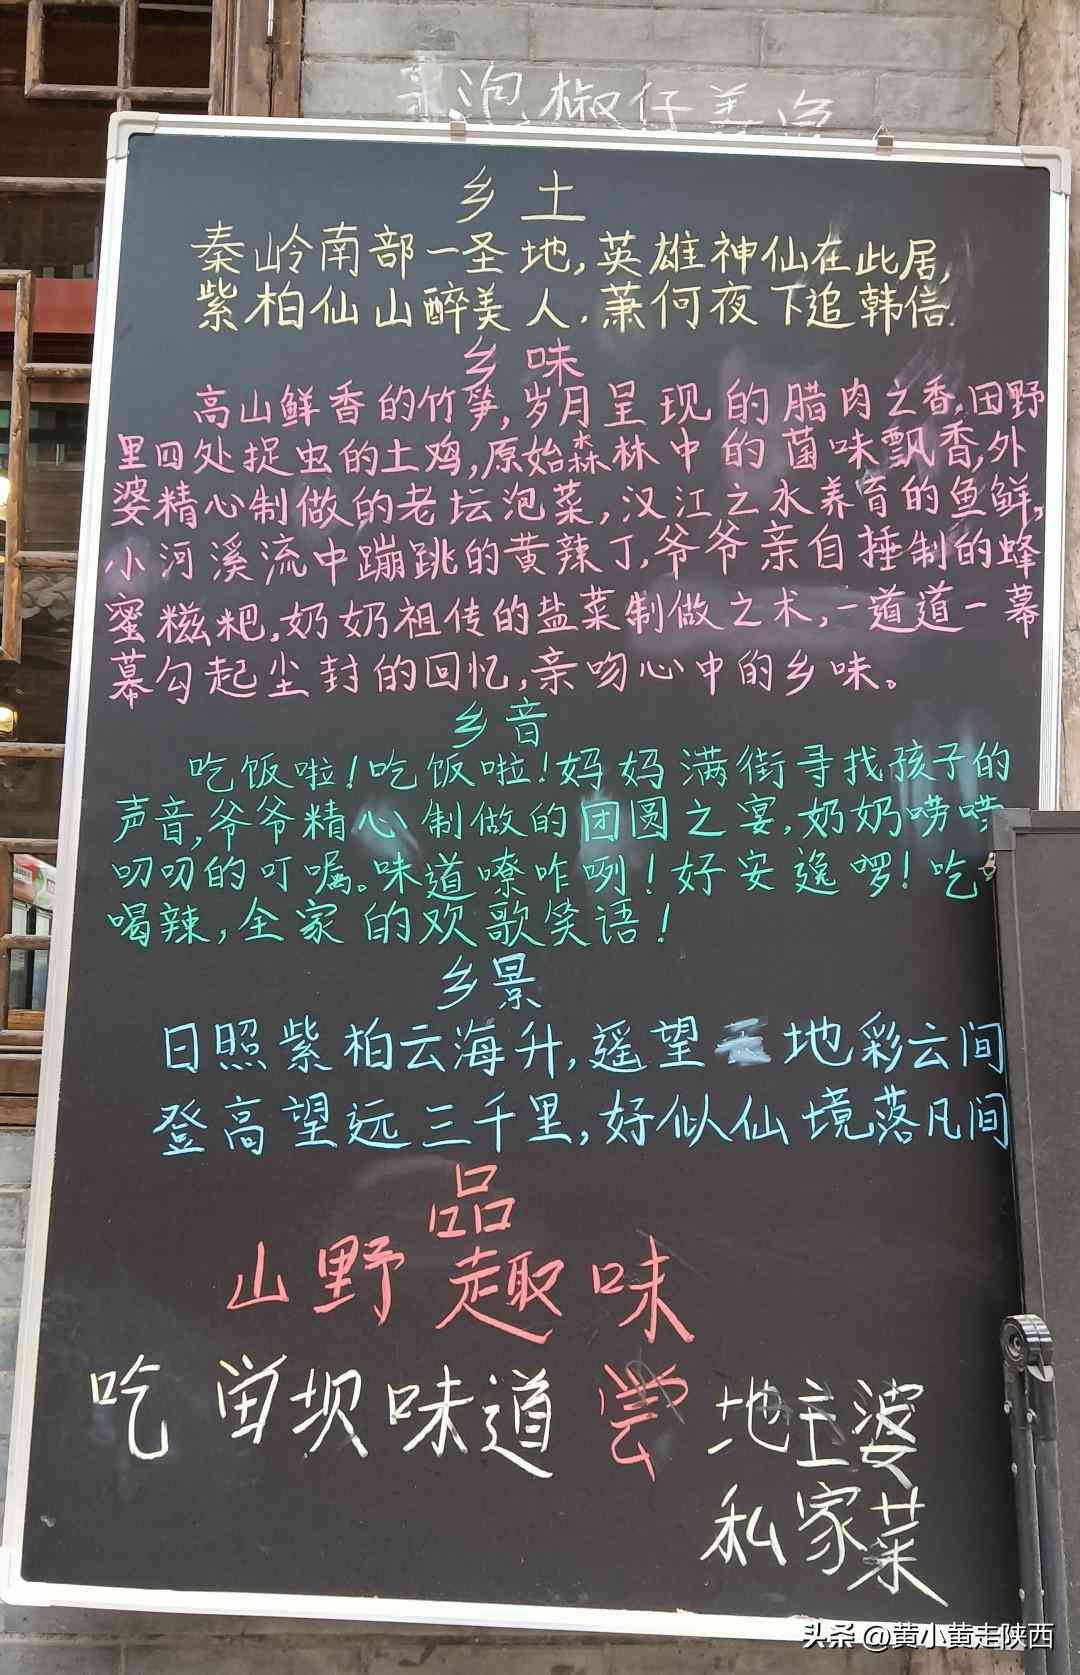 泡椒仔姜鱼
乡土
秦岭南部一圣地,英雄神仙在此居,
紫柏仙山醉美人.萧何夜下追韩信.
乡味
高山鲜香的竹笋,岁月呈现的腊肉之香,田野
里四处捉虫的土鸡,原始森林中的菌味飘香,外
婆精心制做的老坛泡菜,汉江之水养育的鱼鲜,
小河溪流中蹦跳的黄辣丁,爷爷亲自捶制的蜂
蜜糍粑,奶奶祖传的盐菜制做之术,一道道一幕
幕勾起尘封的回忆,亲吻心中的乡味。
乡音
吃饭啦!吃饭啦!妈妈满街寻找孩子的
声音,爷爷精心制做的团圆之宴,奶奶唠唠
叨叨的叮嘱。味道嘹咋咧!好安逸啰!吃
喝辣,全家的欢歌笑语!
乡景
日照紫柏云海升,遥望地彩云间
登高望远三千里,好似仙境落凡间
品
山野趣味
吃 坝味道 尝 地主婆
私家菜
头条 @黄小黄走陕西